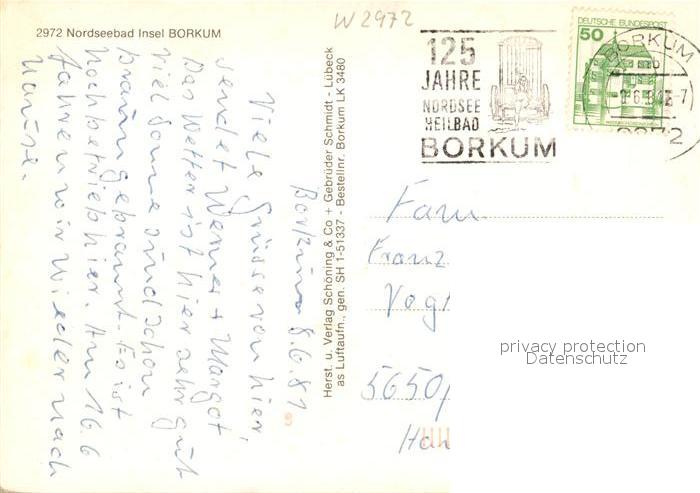 2972 Nordseebad Insel BORKUM
W 2972
125
JAHRE
NORDSEE
HEILBAD
BORKUM
DEUTSCHE BUNDESPOST
50
BORKUM
2972
Borkum 8.6.81
Viele Grüsse von hier,
sendet Werner + Margot,
Das Wetter ist hier sehr gut
viel Sonne sind schon
braun gebrannt. Es ist
Hochbetrieb hier. Am 16.6
fahren wir wieder nach
Hause.
Herst. u. Verlag Schöning & Co + Gebrüder Schmidt - Lübeck
as Luftaufn., gen. SH 1-51337 - Bestellnr. Borkum LK 3480
Fam
Franz
Vog
5650/
Ha
privacy protection
Datenschutz